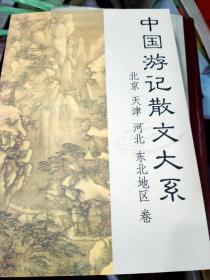 中国游记散文大系
北京 天津 河北 东北地区 卷